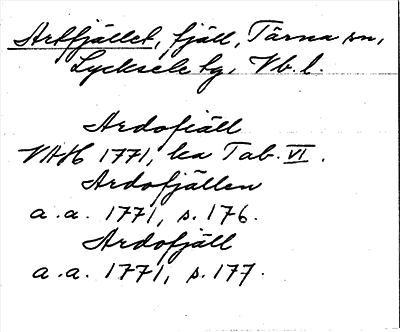 Artfjället, fjäll, Tärna sn,
Lycksele lg, Vb. l.
Ardofiäll
VAH 1771, ka Tab. VI.
Ardofjällen
a.a. 1771, s. 176.
Ardofjäll
a.a. 1771, s. 177.